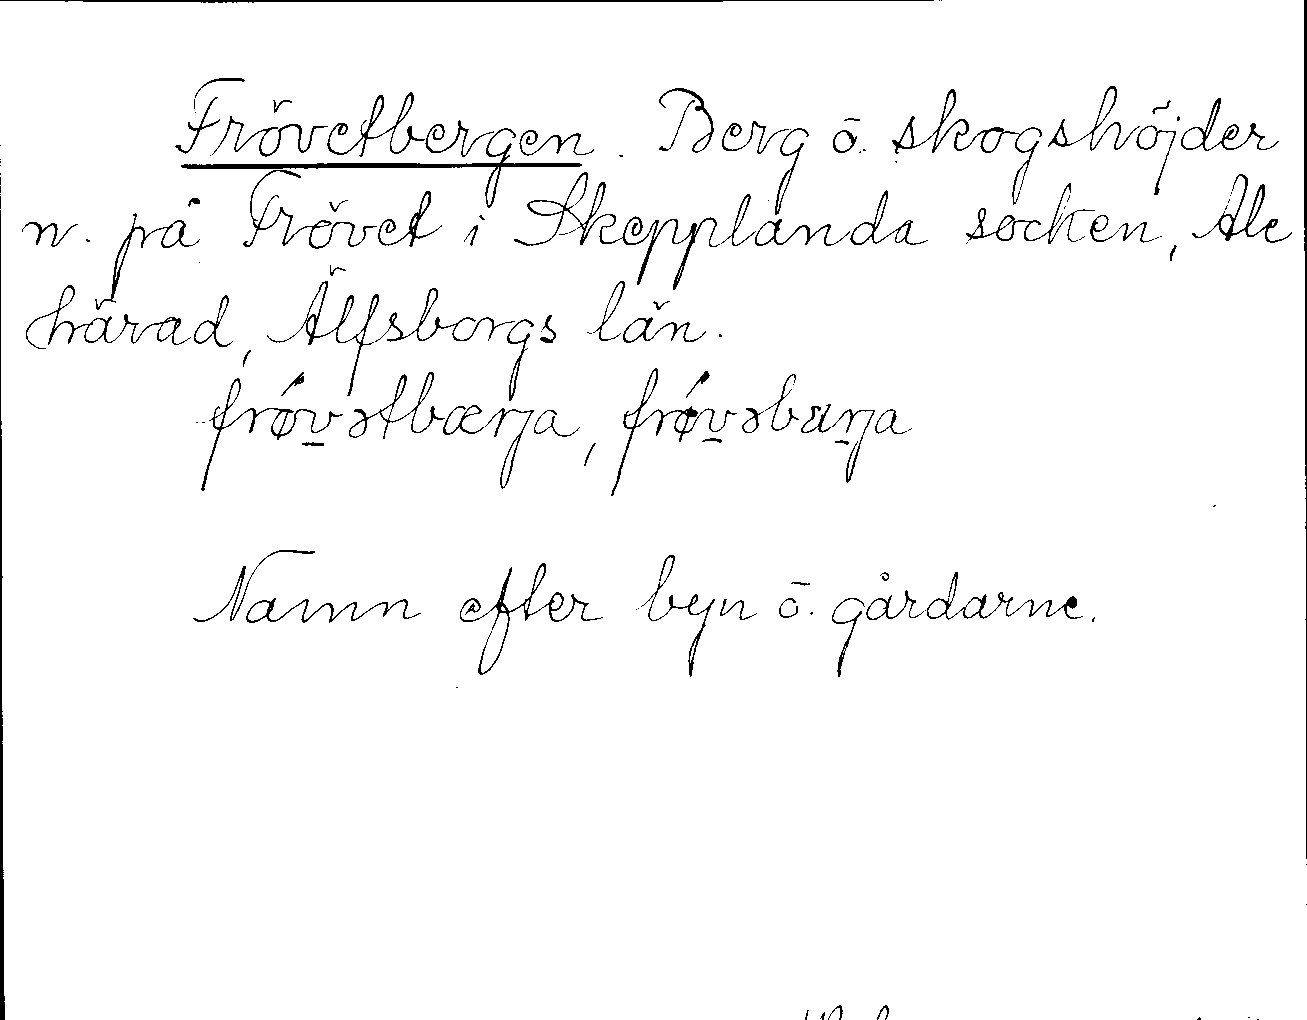 Frövetbergen. Berg ö. skogshöjder
n. på Frövet i Skepplanda socken, Ale
härad, Älfsborgs län.
frǿv̱ətbærja, frǿv̱əbærja
Namn efter byn ö. gårdarne.